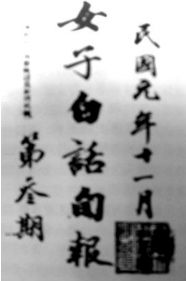 民國元年十一月
女子白話旬報
第叁期